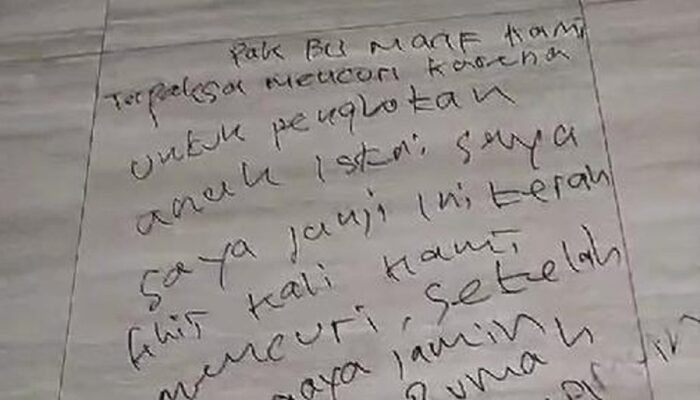 Pak Bu maaf Kami
Terpaksa mencuri karena
untuk pengbotan
anak Istri saya
saya janji Ini terah
khir kali Kami
mencuri, setelah
saya jamin
Rumah